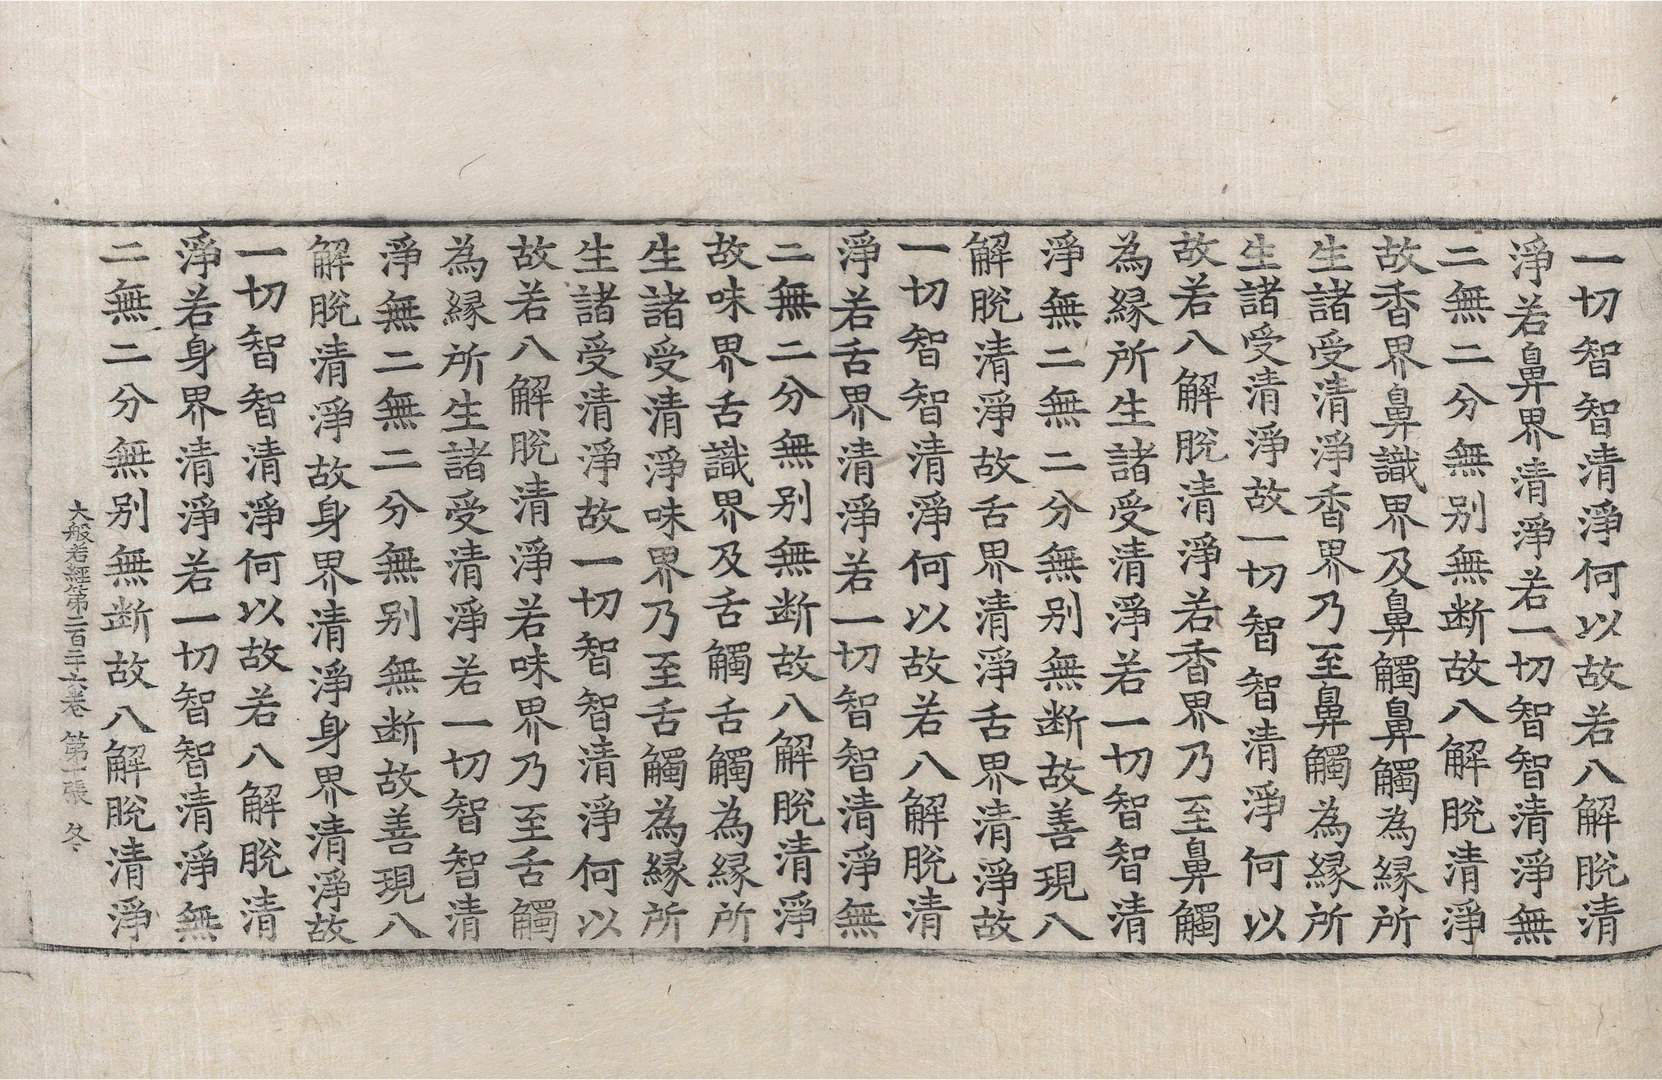 一切智智清淨何以故若八解脫清
淨若鼻界清淨若一切智智清淨無
二無二分無别無断故八解脫清淨
故香界鼻識界及鼻觸鼻觸為縁所
生諸受清淨香界乃至鼻觸為縁所
生諸受清淨故一切智智清淨何以
故若八解脫清淨若香界乃至鼻觸
為縁所生諸受清淨若一切智智清
淨無二無二分無别無断故善現八
解脫清淨故舌界清淨舌界清淨故
一切智智清淨何以故若八解脫清
淨若舌界清淨若一切智智清淨無
二無二分無别無断故八解脫清淨
故味界舌識界及舌觸舌觸為縁所
生諸受清淨味界乃至舌觸為縁所
生諸受清淨故一切智智清淨何以
故若八解脫清淨若味界乃至舌觸
為縁所生諸受清淨若一切智智清
淨無二無二分無别無断故善現八
解脫清淨故身界清淨身界清淨故
一切智智清淨何以故若八解脫清
淨若身界清淨若一切智智清淨無
二無二分無别無断故八解脫清淨
大般若經第二百二十六卷 第一張 冬